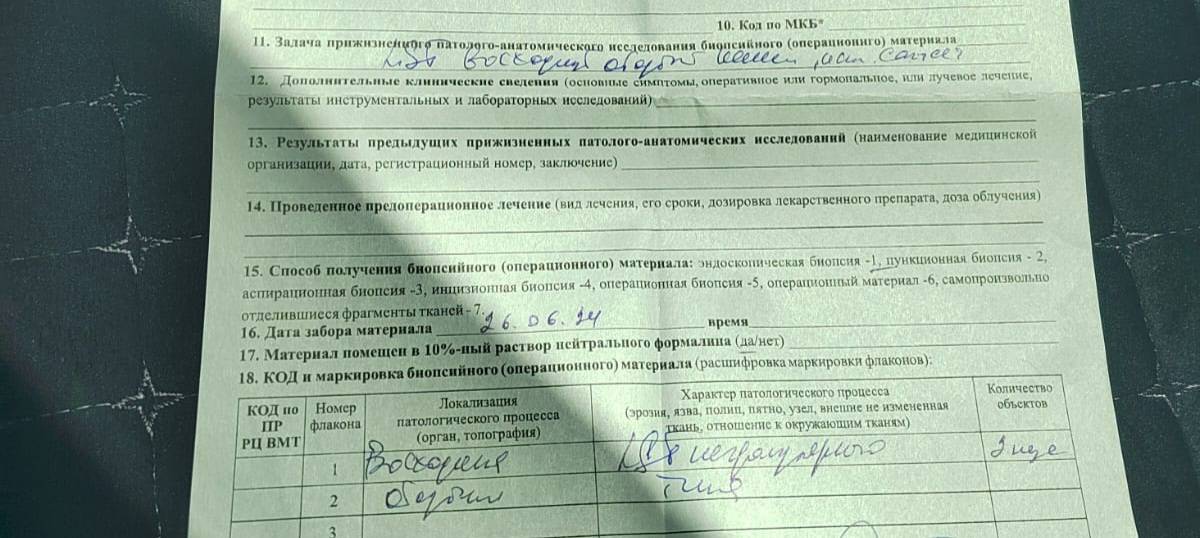 10. Код по МКБ*
11. Задача прижизненного патолого-анатомического исследования биопсийного (операционнго) материала
Восходящ ободоч кишки cancer
12. Дополнительные клинические сведения (основные симптомы, оперативное или гормональное, или лучевое лечение,
результаты инструментальных и лабораторных исследований)
13. Результаты предыдущих прижизненных патолого-анатомических исследований (наименование медицинской
организации, дата, регистрационный номер, заключение)
14. Проведенное предоперационное лечение (вид лечения, его сроки, дозировка лекарственного препарата, доза облучения)
15. Способ получения биопсийного (операционного) материала: эндоскопическая биопсия -1, пункционная биопсия - 2,
аспирационная биопсия -3, инцизионная биопсия -4, операционная биопсия -5, операционный материал -6, самопроизвольно
отделившиеся фрагменты тканей - 7.
16. Дата забора материала 26.06.24 время
17. Материал помещен в 10%-ный раствор нейтрального формалина (да/нет)
18. КОД и маркировка биопсийного (операционного) материала (расшифровка маркировки флаконов):
КОД по ПР РЦ ВМТ
Номер флакона
Локализация патологического процесса (орган, топография)
Характер патологического процесса (эрозия, язва, полип, пятно, узел, внешне не измененная ткань, отношение к окружающим тканям)
Количество объектов
1 Восходящ гранулярного
2 ободоч типа
3